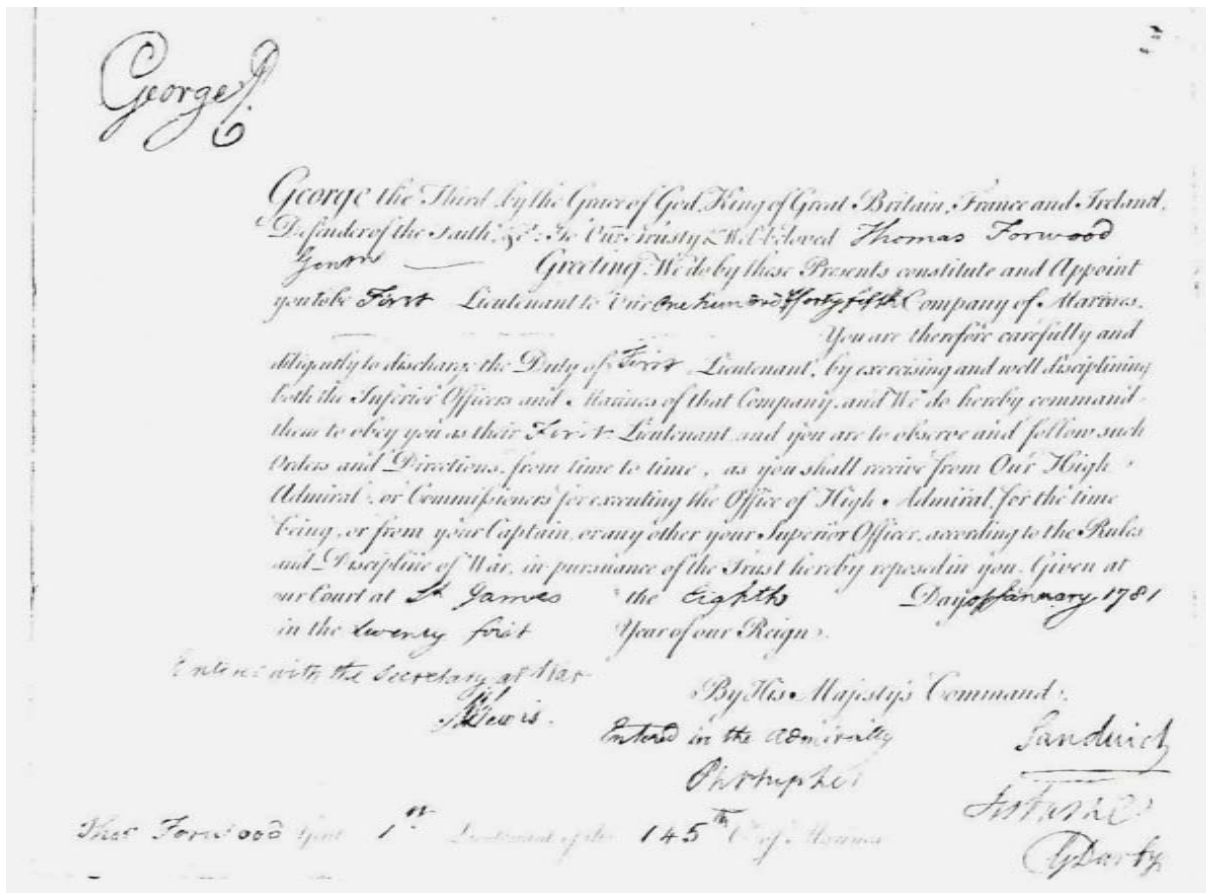 George R.
George the Third, by the Grace of God, King of Great Britain, France and Ireland,
Defender of the Faith, &c. To Our Trusty & Wel-beloved Thomas Forwood
Gentn. Greeting: We do by these Presents constitute and Appoint
you to be First Lieutenant to Our One hundred & forty fifth Company of Marines.
You are therefore carefully and
diligently to discharge the Duty of First Lieutenant, by exercising and well disciplining
both the Inferior Officers and Marines of that Company, and We do hereby command
them to obey you as their First Lieutenant, and you are to observe and follow such
Orders and Directions, from time to time, as you shall receive from Our High
Admiral, or Commissioners for executing the Office of High Admiral, for the time
being, or from your Captain, or any other your Superior Officer, according to the Rules
and Discipline of War, in pursuance of the Trust hereby reposed in you. Given at
our Court at St. James the Eighth Day of January 1781
in the twenty first Year of our Reign.
Entered with the Secretary at War
Lewis.
By His Majesty's Command.
Entered in the Admiralty
Sandwich
G Darby
Thos. Forwood Gent 1st. Lieutenant of the 145th Co. of Marines